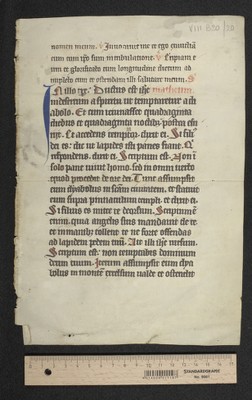 VIII 630/20
nomen meum. Invocavit me et ego exaudiā
eum cum ipō sum in tribulatione. Eripiam e
um et glorificabo eum longitudine dierum ad
implebo eum et ostendam illi salutare meum. S
In illo tpr. Ductus est ihc matheum.
in desertum a spiritu ut temptaretur a di
abolo. Et cum ieiunasset quadraginta
diebus et quadraginta noctib; postea esu
riit. Et accedens temptator dixit ei. Si fili'
dei es: dic ut lapides isti panes fiant. Q
respondens. dixit ei. Scriptum est. Non i
solo pane vivit homo. sed in omni verbo
quod procedit de ore dei. Tunc assumpsit
eum dyabolus in scām civitatem. et statuit
eum supra pinnaculum templi. et dixit ei.
Si filius es mitte te deorsum. Scriptum ē
enim. quia angelis suis mandavit de te.
et in manib; tollent te ne forte offendas
ad lapidem pedem tuū. Ait illi ihc rursum.
Scriptum est: non temptabis dominum
deum tuum. Iterum assumpsit eum dya
bolus in montē excelsum valde et ostendit
STANDAARDKAPSEL